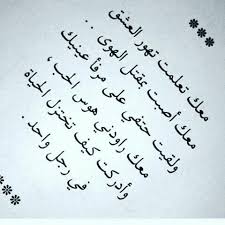 ***
معك تعلمت تهور العشق
معك أصبت بمقتل الهوى ..
ولقيت حتفي على مرفأ عينيك
معك راودني هوس الحب ،
وأدركت كيف تختزل الحياة
في رجل واحد .
***